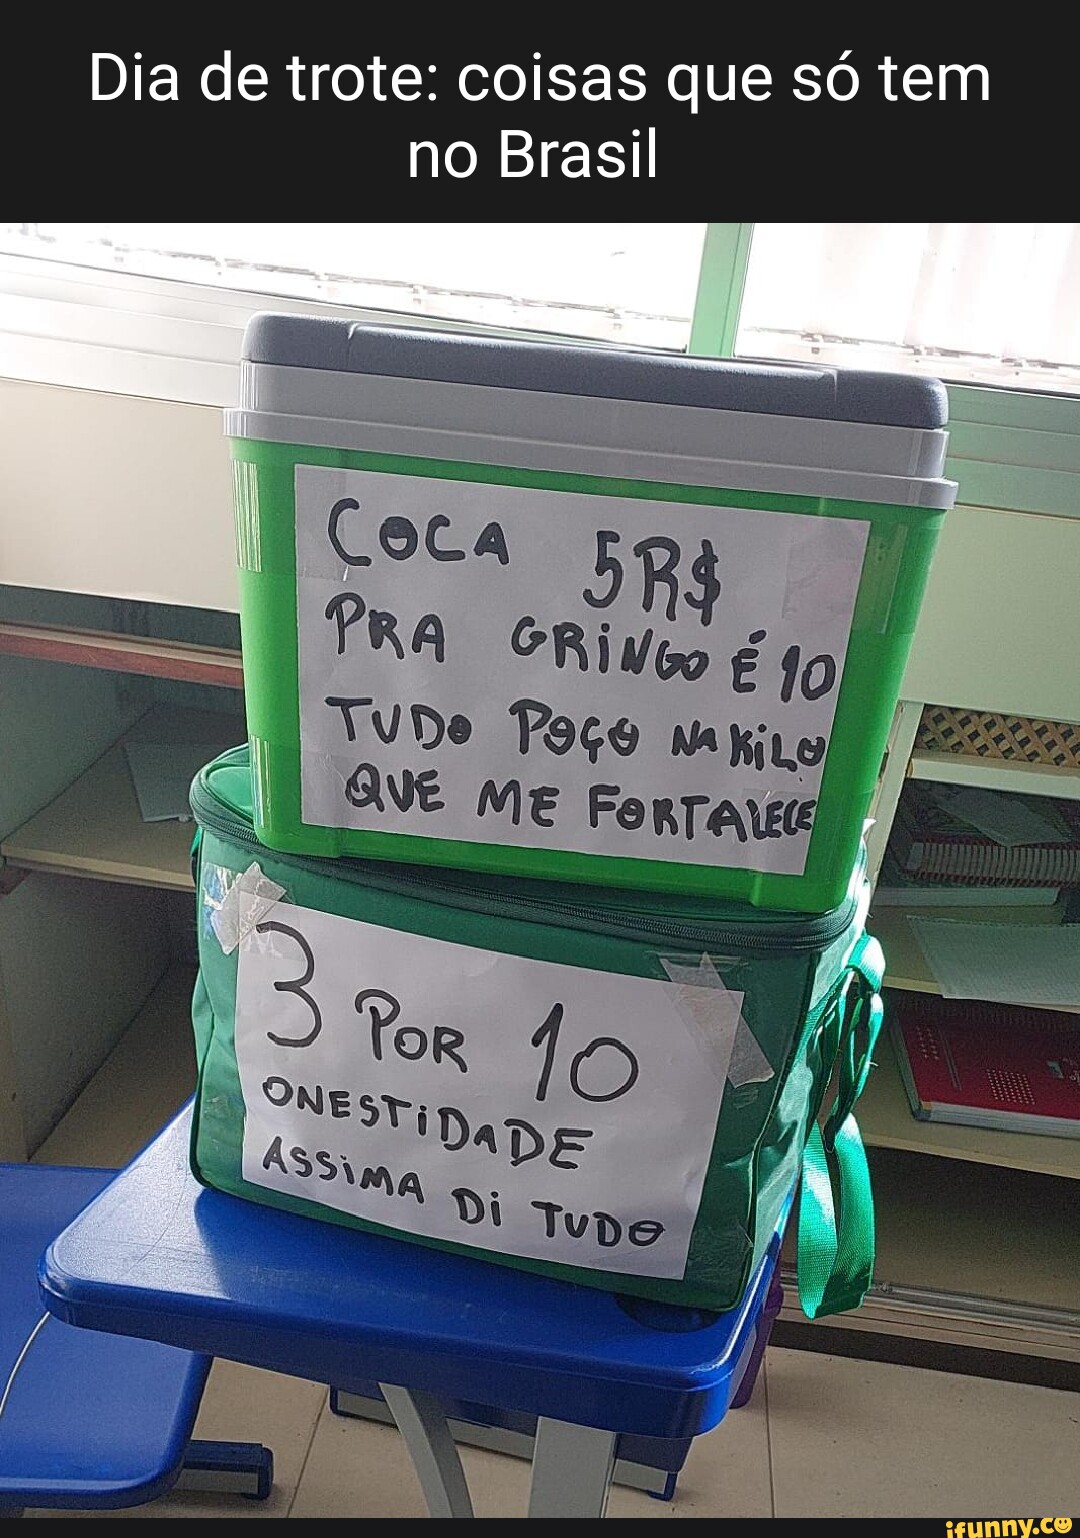 Dia de trote: coisas que só tem
no Brasil
COCA 5R$
PRA GRINGO É 10
TUDO POÇO NA KILO
QUE ME FORTALECE
3 POR 10
ONESTIDADE
ASSIMA DI TUDO
ifunny.co